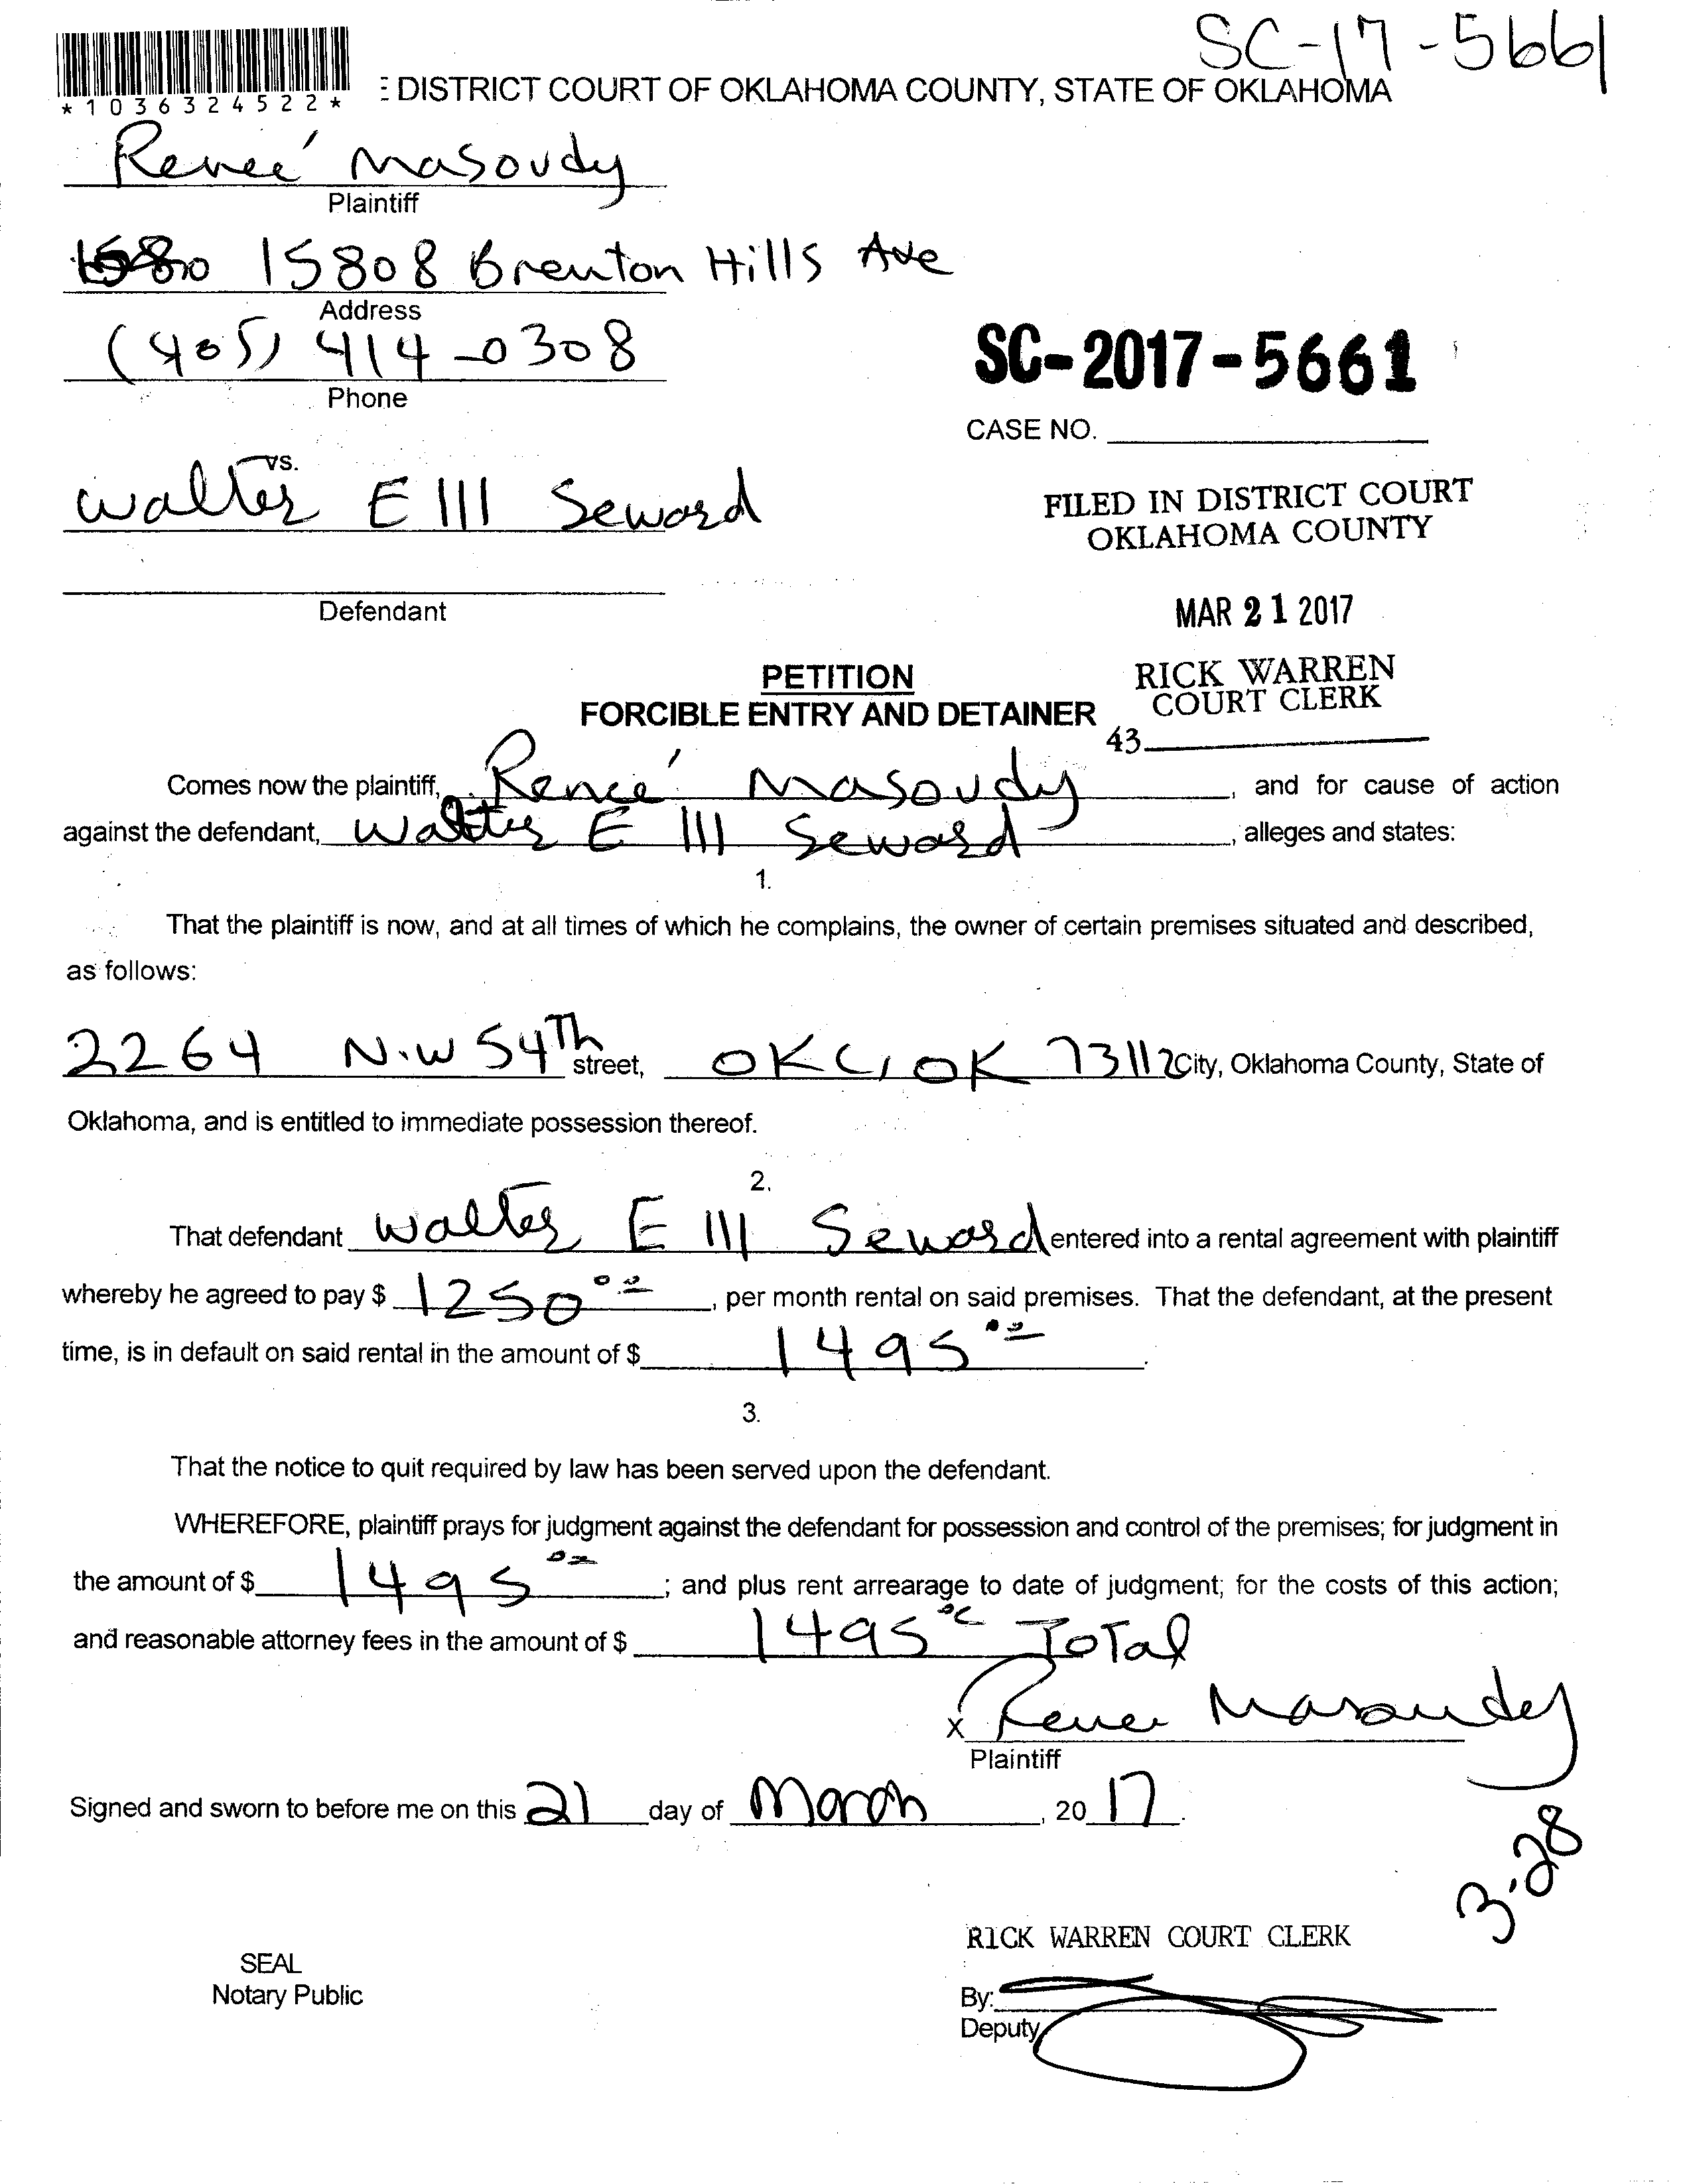 SC-17-5661
*1036324522*
DISTRICT COURT OF OKLAHOMA COUNTY, STATE OF OKLAHOMA
Renee' Masoudy
Plaintiff
15808 Brenton Hills Ave
Address
(405) 414-0308
Phone
SC-2017-5661
CASE NO.
vs.
Walter E III Seward
FILED IN DISTRICT COURT
OKLAHOMA COUNTY
Defendant
MAR 21 2017
PETITION
FORCIBLE ENTRY AND DETAINER
RICK WARREN
COURT CLERK
43
Comes now the plaintiff, Renee' Masoudy, and for cause of action
against the defendant, Walter E III Seward, alleges and states:
1.
That the plaintiff is now, and at all times of which he complains, the owner of certain premises situated and described,
as follows:
2264 N.W 54Th street, OKC, OK 73112 City, Oklahoma County, State of
Oklahoma, and is entitled to immediate possession thereof.
2.
That defendant Walter E III Seward entered into a rental agreement with plaintiff
whereby he agreed to pay $ 1250 00, per month rental on said premises. That the defendant, at the present
time, is in default on said rental in the amount of $ 1495 00.
3.
That the notice to quit required by law has been served upon the defendant.
WHEREFORE, plaintiff prays for judgment against the defendant for possession and control of the premises; for judgment in
the amount of $ 1495 00; and plus rent arrearage to date of judgment; for the costs of this action;
and reasonable attorney fees in the amount of $ 1495 00 Total
x Renee Masoudy
Plaintiff
Signed and sworn to before me on this 21 day of March, 2017.
3-28
RICK WARREN COURT CLERK
SEAL
Notary Public
By:
Deputy